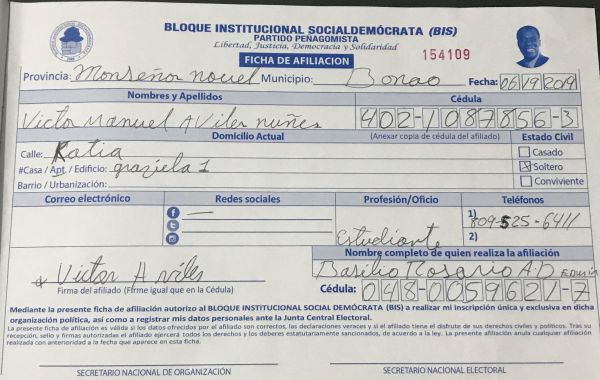 BLOQUE INSTITUCIONAL SOCIALDEMÓCRATA (BIS)
PARTIDO PEÑAGOMISTA
Libertad, Justicia, Democracia y Solidaridad
FICHA DE AFILIACION
154109
Provincia: Monseñor nouel Municipio: Bonao Fecha: 06/19/2019
Nombres y Apellidos Cédula
Victor Manuel Aviles nuñes 402-1087856-3
Domicilio Actual (Anexar copia de cédula del afiliado) Estado Civil
Calle: Katia Casado
#Casa / Apt. / Edificio: graziela 1 Soltero
Barrio / Urbanización: Conviviente
Correo electrónico Redes sociales Profesión/Oficio Teléfonos
1) 809-525-6411
Estudiante 2)
Nombre completo de quien realiza la afiliación
Victor Aviles Basilio Rosario
Firma del afiliado (Firme igual que en la Cédula) Cédula: 048-0059621-7
Mediante la presente ficha de afiliación autorizo al BLOQUE INSTITUCIONAL SOCIAL DEMÓCRATA (BIS) a realizar mi inscripción única y exclusiva en dicha
organización política, así como a registrar mis datos personales ante la Junta Central Electoral.
La presente ficha de afiliación es válida si los datos ofrecidos por el afiliado son correctos, las declaraciones veraces y si el afiliado tiene el disfrute de sus derechos civiles y políticos. Tras su
recepción, sello y firmas autorizadas el afiliado ejercerá a todos los derechos y los deberes estatutariamente sancionados, de acuerdo a la ley. La presente afiliación anula cualquier afiliación
realizada con anterioridad a la fecha que aparece en esta ficha.
SECRETARIO NACIONAL DE ORGANIZACIÓN SECRETARIO NACIONAL ELECTORAL